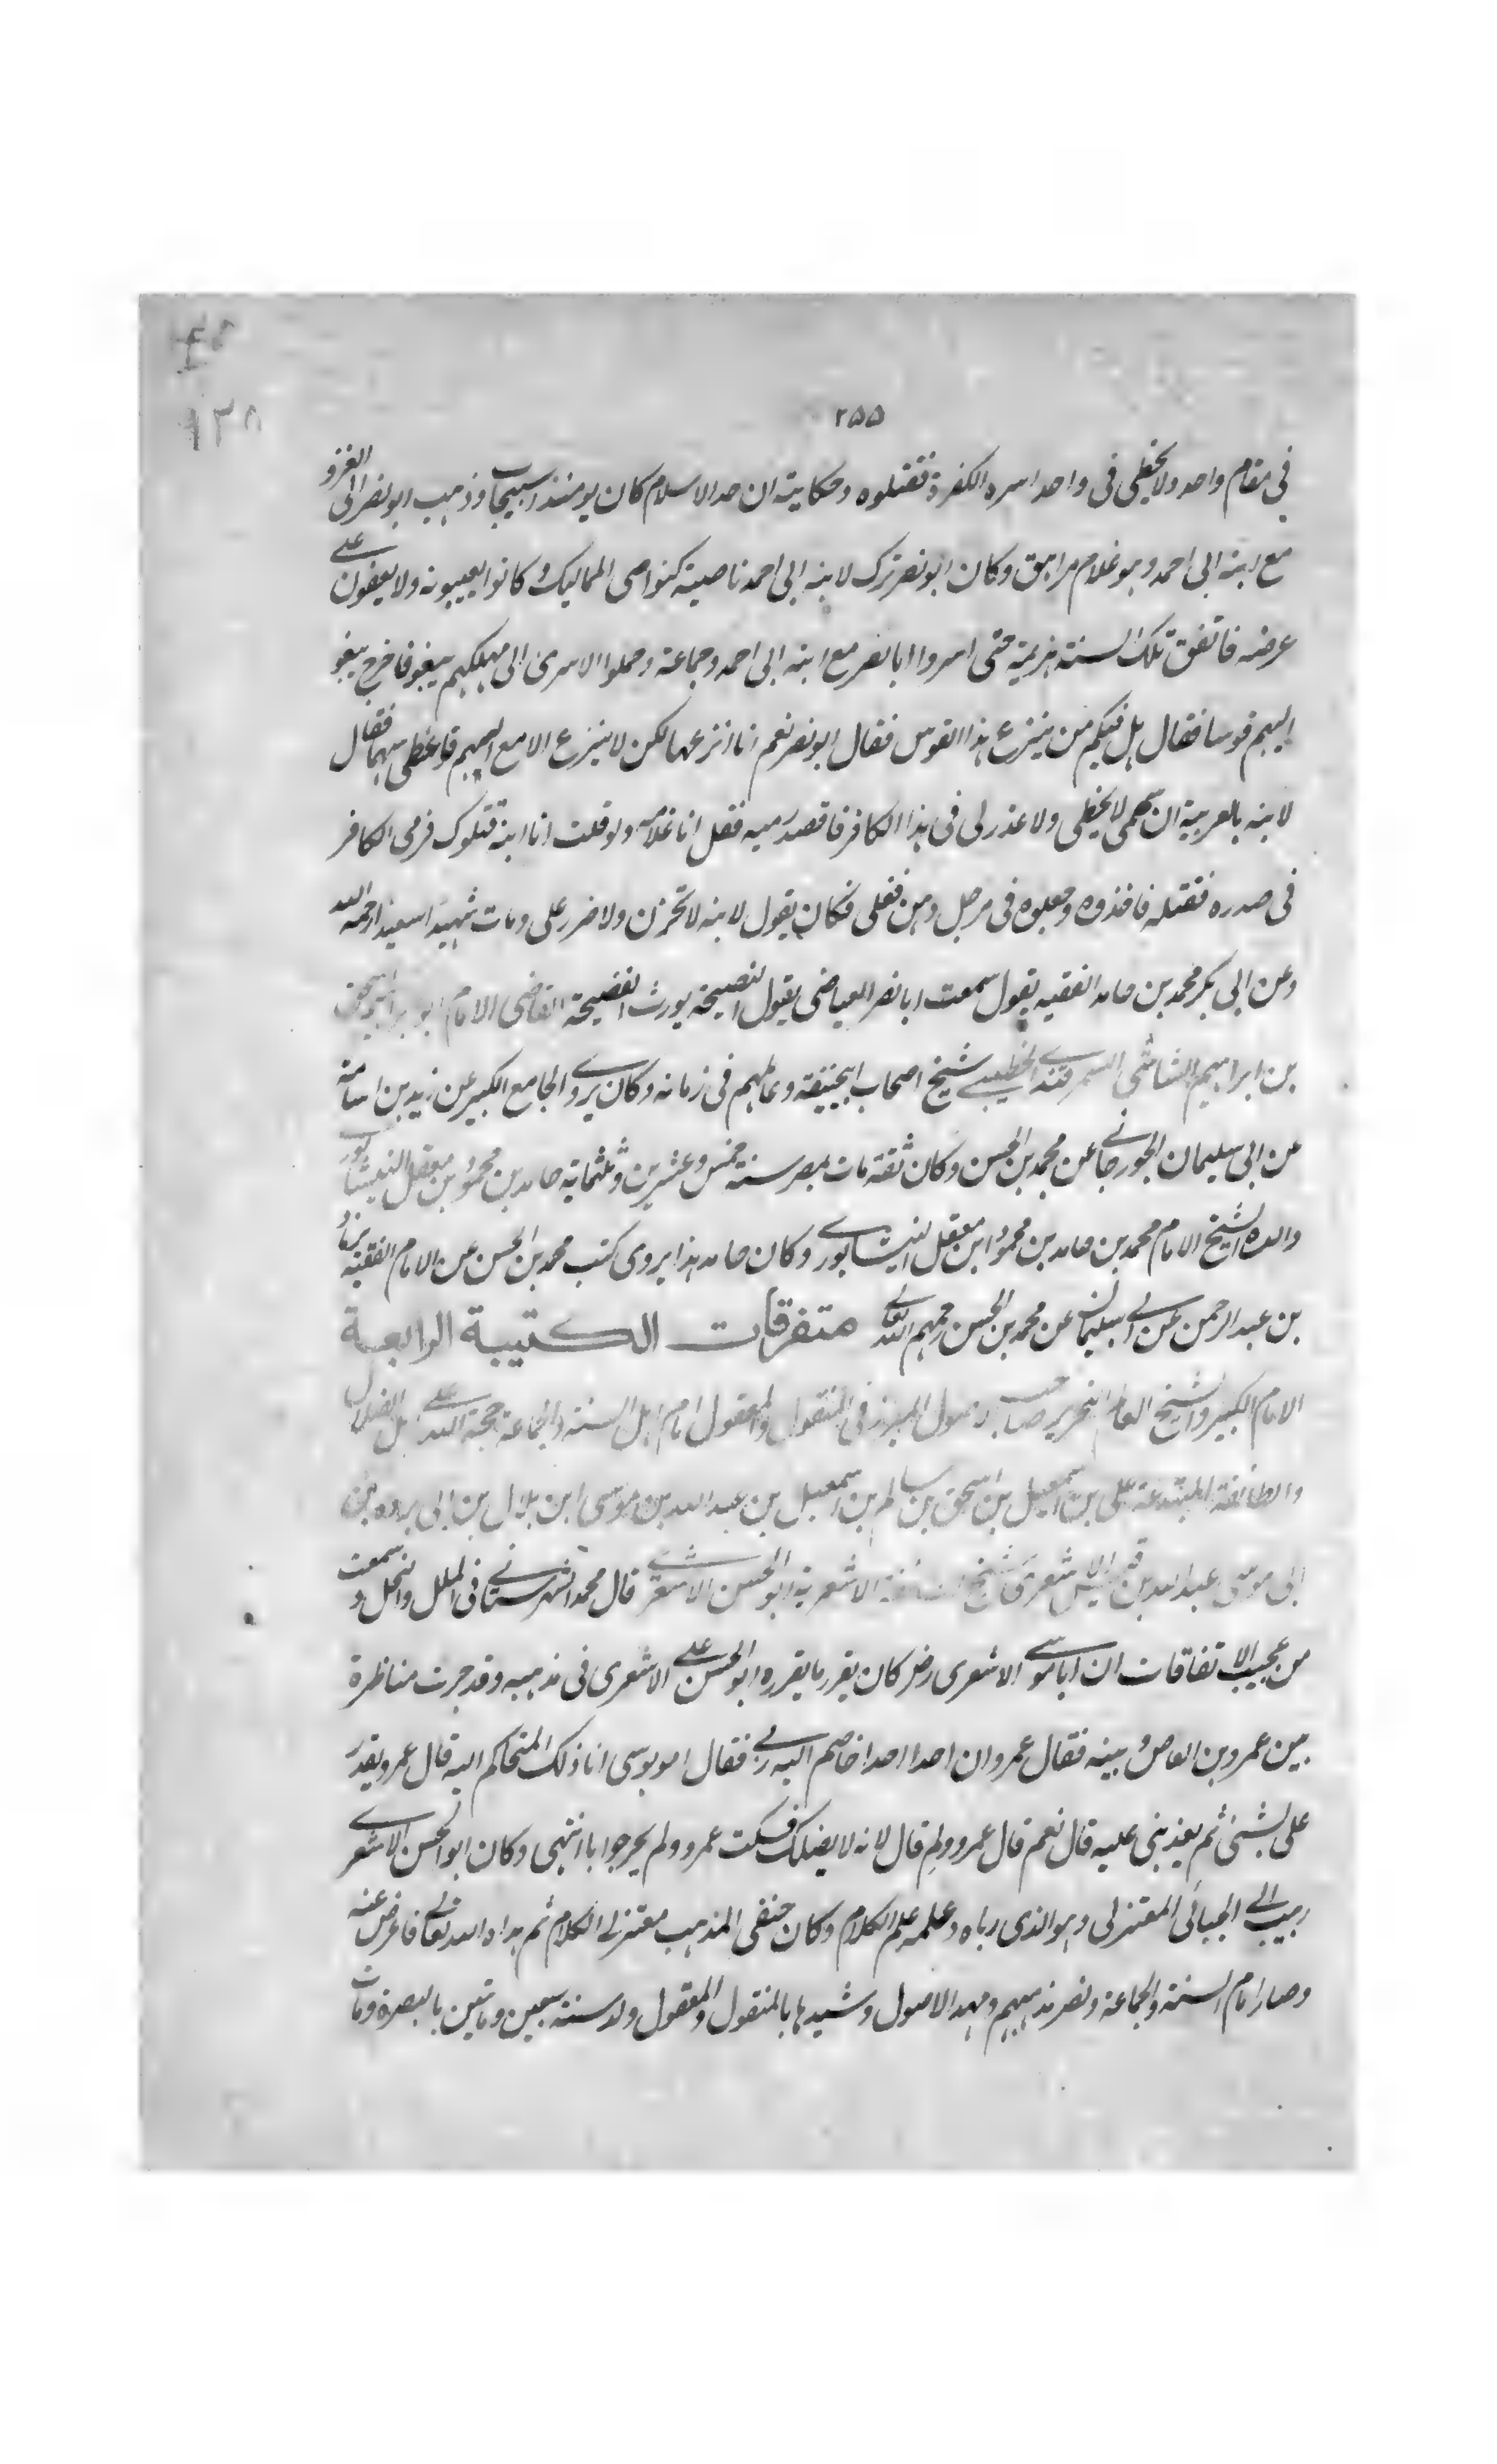 ١٣٨
٢٥٥
في مقام واحد ولا يخطى فى واحد اسره الكفرة فقتلوه وحكايته ان حد الاسلام كان يومئذ اسبيجاب وذهب ابو نصر الى الغزو
مع ابنه ابى احمد وهو غلام مراهق وكان ابو نصر ترك لابنه ابى احمد ناصية كنواصى المماليك وكانوا يعيبونه ولا يقفون على
غرضه فاتفق تلك السنة هزيمة حتى اسروا ابا نصر مع ابنه ابى احمد وجماعة وحملوا الاسرى الى ملكهم يبغو فاخرج يبغو
اليهم قوسا فقال هل فيكم من ينزع هذا القوس فقال ابو نصر نعم انا انزعها لكن لا ينزع الا مع السهم فاعطى سهما فقال
لابنه بالعربية ان سهمى لا يخطى ولا عذر لى فى هذا الكافر فاقصد رميه فقل انا غلامه ولو قلت انا ابنه قتلوك فرمى الكافر
فى صدره فقتله فاخذوه وجعلوه فى مرجل دهن فغلى فكان يقول لابنه لا تحزن ولا ضرر على ومات شهيدا سعيدا رحمه الله
وعن ابى بكر محمد بن حامد الفقيه يقول سمعت ابا نصر العياضى يقول النصيحة يورث الفضيحة القاضى الامام ابو ابراهيم اسحق
بن ابراهيم الشاشى السمرقندى الخطيبى شيخ اصحاب ابيحنيفة وعالمهم فى زمانه وكان يروى الجامع الكبير عن زيد بن اسامة
عن ابى سليمان الجورجانى عن محمد بن الحسن وكان ثقة مات بمصر سنة خمس وعشرين وثلثمائة حامد بن محمود بن معقل النيشابورى
والده الشيخ الامام محمد بن حامد بن محمود ابن معقل النيشابورى وكان حامد هذا يروى كتب محمد بن الحسن عن الامام الفقيه
بن عبد الرحمن عن ابى سليمان عن محمد بن الحسن رحمهم الله تعالى متفرقات الكتيبة الرابعة
الامام الكبير والشيخ العالم النحرير صاحب الاصول المبرز فى المنقول والمعقول امام اهل السنة والجماعة حجة الله على اهل الضلال
والطائفة المبتدعة على بن اسمعيل بن اسحق بن سالم بن اسمعيل بن عبد الله بن موسى ابن بلال بن ابى برده بن
ابى موسى عبد الله بن قيس الاشعرى شيخ الاشعرية ابو الحسن الاشعرى قال محمد الشهرستانى فى الملل والنحل وسمعت
من عجيب الاتفاقات ان ابا موسى الاشعرى رض كان يقرر ما يقرره ابو الحسن على الاشعرى فى مذهبه وقد جرت مناظرة
بين عمرو بن العاص وبينه فقال عمرو ان احدا احدا خاصم اليه ربى فقال ابو موسى انا ذلك المتحاكم اليه قال عمرو يقدر
على شىء ثم يعذبنى عليه قال نعم قال عمرو ولم قال لانه لا يظلمك فسكت عمرو ولم يحر جوابا انتهى وكان ابو الحسن الاشعرى
ربيب ابى الجبائى المعتزلى وهو الذى رباه وعلمه علم الكلام وكان حنفى المذهب معتزلى الكلام ثم هداه الله تعالى فاعرض عنه
وصار امام السنة والجماعة ونصر مذهبهم ومهد الاصول وشيدها بالمنقول والمعقول ولد سنة سبعين ومائتين بالبصرة ومات